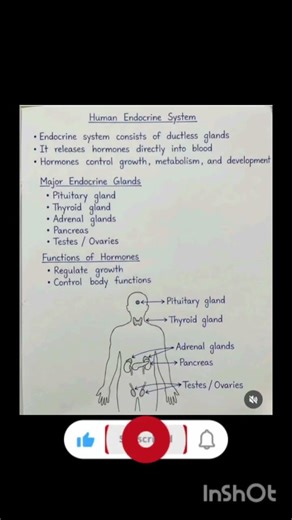 Human Endocrine System
• Endocrine system consists of ductless glands
• It releases hormones directly into blood
• Hormones control growth, metabolism, and development
Major Endocrine Glands
• Pituitary gland
• Thyroid gland
• Adrenal glands
• Pancreas
• Testes / Ovaries
Functions of Hormones
• Regulate growth
• Control body functions
Pituitary gland
Thyroid gland
Adrenal glands
Pancreas
Testes / Ovaries
InShOt